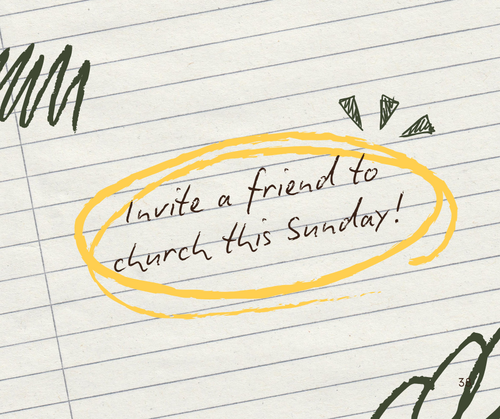 Invite a friend to
church this Sunday!